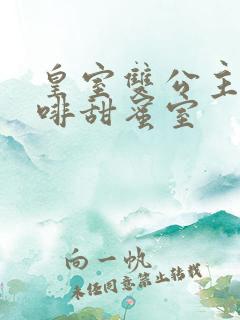 皇室雙公主
啡甜蜜室
向一帆
未经同意禁止转载